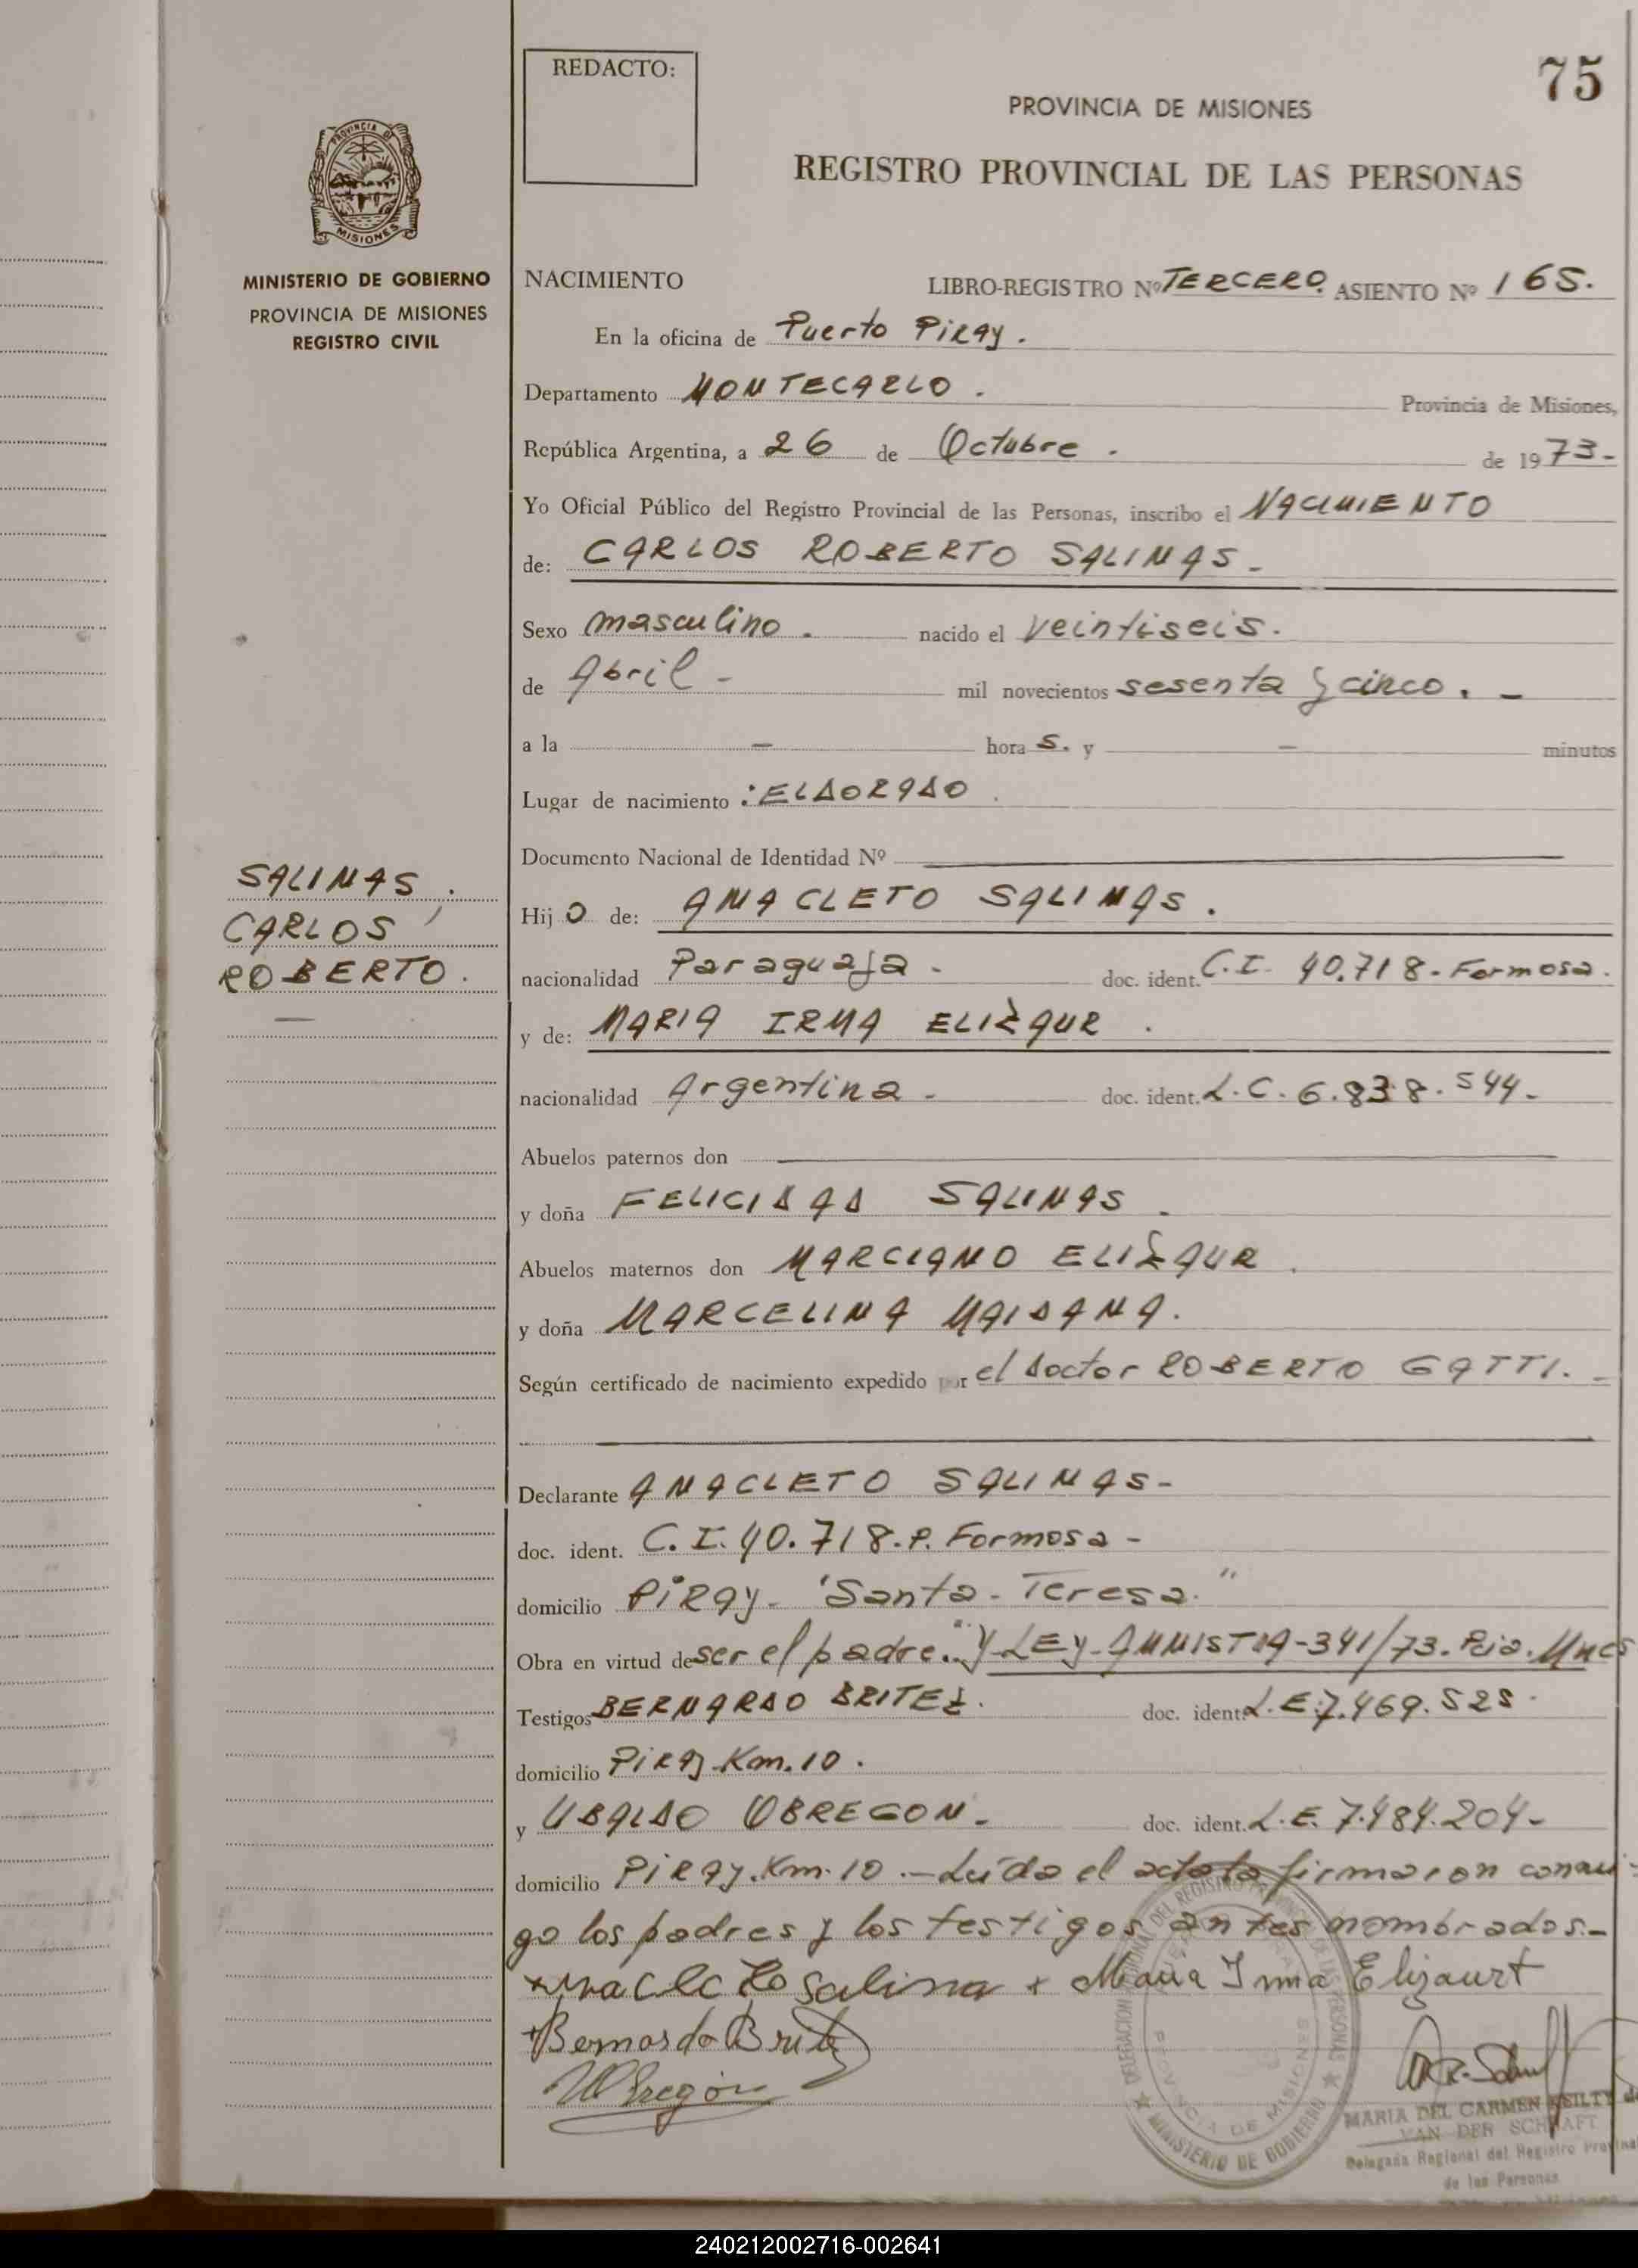 REDACTO:
75
PROVINCIA DE MISIONES
REGISTRO PROVINCIAL DE LAS PERSONAS
PROVINCIA DE
MISIONES
MINISTERIO DE GOBIERNO
PROVINCIA DE MISIONES
REGISTRO CIVIL
NACIMIENTO LIBRO-REGISTRO Nº TERCERO. ASIENTO Nº 165.
En la oficina de Puerto Piray.
Departamento MONTECARLO. Provincia de Misiones,
República Argentina, a 26 de Octubre. de 1973-
Yo Oficial Público del Registro Provincial de las Personas, inscribo el NACIMIENTO
de: CARLOS ROBERTO SALINAS-
Sexo masculino. nacido el veintiseis.
de Abril- mil novecientos sesenta y cinco. -
a la - hora s. y - minutos
Lugar de nacimiento: ELDORADO.
Documento Nacional de Identidad Nº
SALINAS,
CARLOS
ROBERTO.
Hijo de: ANACLETO SALINAS.
nacionalidad Paraguaja- doc. ident. C.I. 40.718-Formosa.
y de: MARIA IRMA ELIZAUR.
nacionalidad Argentina- doc. ident. L.C. 6.838.544-
Abuelos paternos don
y doña FELICIDAD SALINAS.
Abuelos maternos don MARCIANO ELIZAUR.
y doña MARCELINA MAIDANA.
Según certificado de nacimiento expedido por el doctor ROBERTO GATTI.-
Declarante ANACLETO SALINAS-
doc. ident. C.I. 40.718.P. Formosa-
domicilio PIRAY- "Santa-Teresa."
Obra en virtud de ser el padre. "Y-LEY-AMNISTIA-341/73. Pcia. Mnes
Testigos BERNARDO BRITEZ. doc. ident. L.E. 7.469.525.
domicilio Piray-Km.10.
y UBALDO OBREGON- doc. ident. L.E. 7.484.204-
domicilio PIRAY.Km.10.-Leída el acta firmaron conmi-
go los padres y los testigos antes nombrados.-
Anacleto Salina + Maria Irma Elizaurt
+Bernardo Britez
UObregón
DELEGACION REGIONAL DEL REGISTRO PROVINCIAL DE LAS PERSONAS
PROVINCIA DE MISIONES
MINISTERIO DE GOBIERNO
MARIA DEL CARMEN REILTY de
VAN DER SCHRAFT
Delegada Regional del Registro Provincial
de las Personas
240212002716-002641